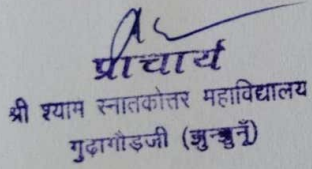 प्राचार्य
श्री श्याम स्नातकोत्तर महाविद्यालय
गुढ़ागौड़जी (झुन्झुनूँ)